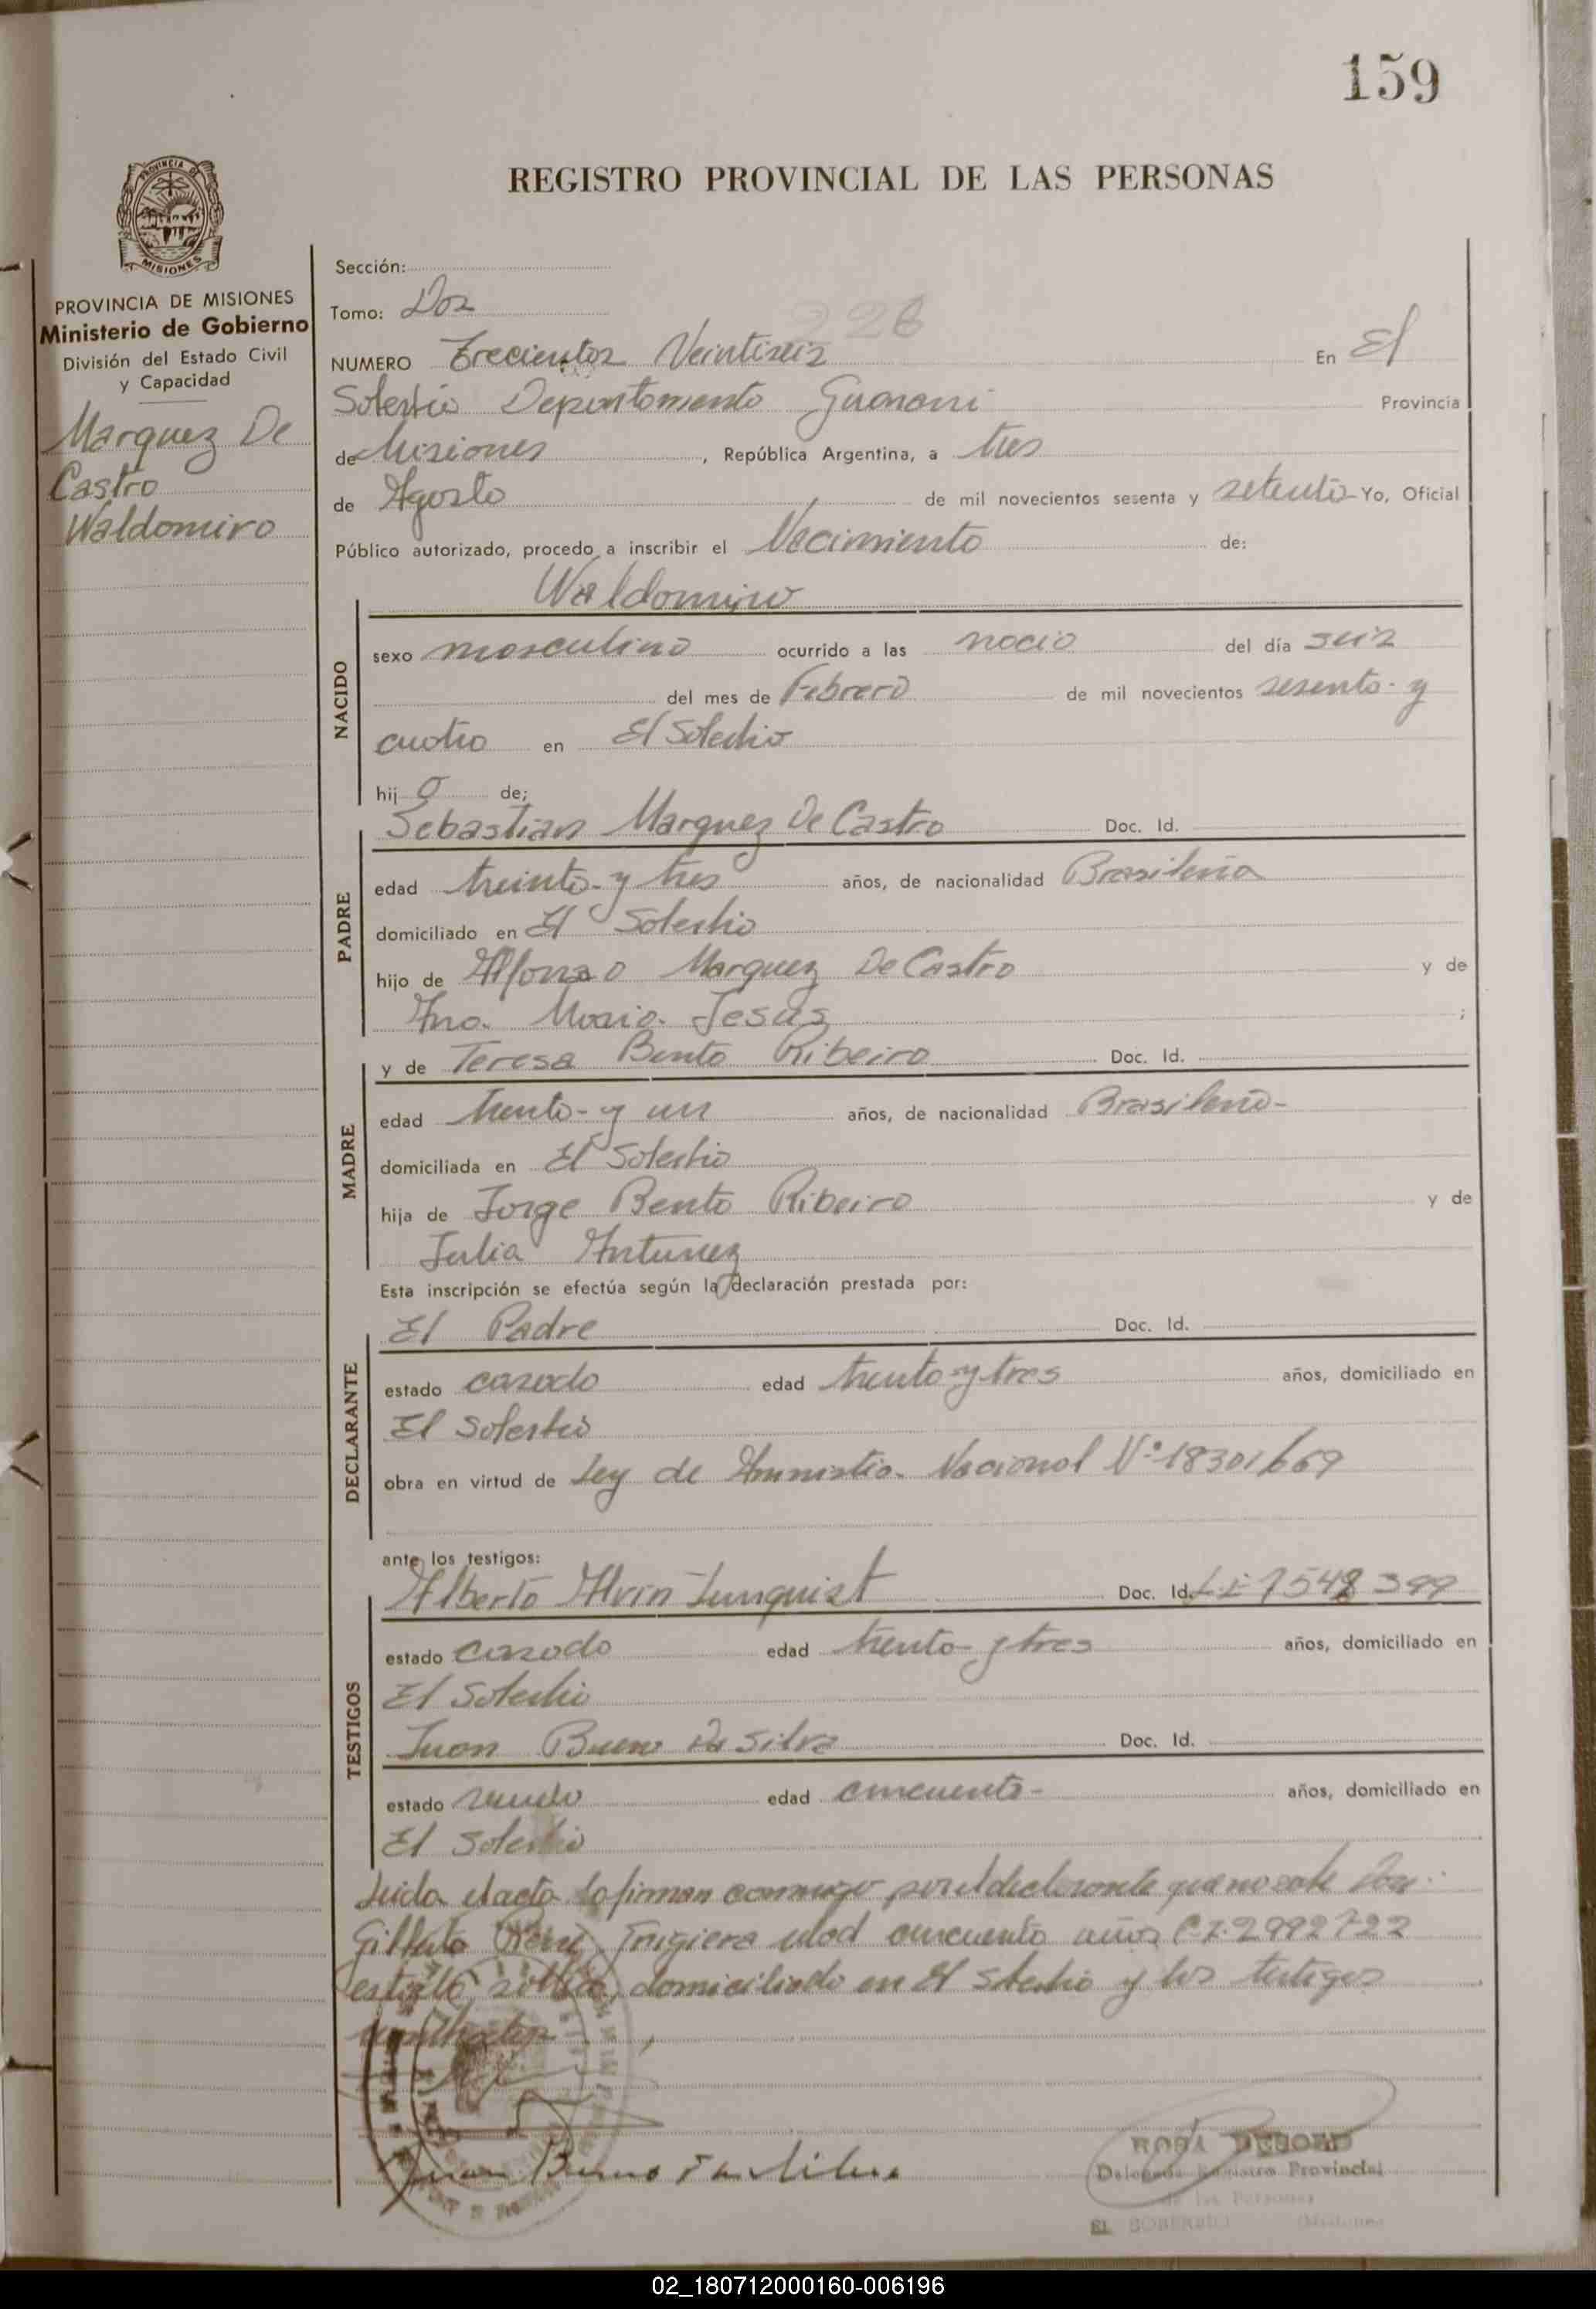 159
REGISTRO PROVINCIAL DE LAS PERSONAS
PROVINCIA DE MISIONES
PROVINCIA DE MISIONES
Ministerio de Gobierno
División del Estado Civil
y Capacidad
Marquez De
Castro
Waldomiro
Sección:
Tomo: Dos
226
NUMERO Trecientos Veintiseis En El
Soberbio Departamento Guarani Provincia
de Misiones, República Argentina, a tres
de Agosto de mil novecientos sesenta y setenta Yo, Oficial
Público autorizado, procedo a inscribir el Nacimiento de:
Waldomiro
NACIDO
sexo masculino ocurrido a las nació del día seis
del mes de Febrero de mil novecientos sesenta y
cuatro en El Soberbio
hij o de;
Sebastian Marquez De Castro Doc. Id.
PADRE
edad treinta y tres años, de nacionalidad Brasileña
domiciliado en El Soberbio
hijo de Alfonso Marquez De Castro y de
Ana Maria Jesus ;
y de Teresa Bento Ribeiro Doc. Id.
MADRE
edad trenta y un años, de nacionalidad Brasileña
domiciliada en El Soberbio
hija de Jorge Bento Ribeiro y de
Julia Antunez
Esta inscripción se efectúa según la declaración prestada por:
El Padre Doc. Id.
DECLARANTE
estado casado edad trenta y tres años, domiciliado en
El Soberbio
obra en virtud de Ley de Amnistia Nacional Nº 18301/669
ante los testigos:
Alberto Alvin Lunquist Doc. Id. L.E 7548399
TESTIGOS
estado casado edad trenta y tres años, domiciliado en
El Soberbio
Juan Bueno Da Silva Doc. Id.
estado edad cincuenta años, domiciliado en
El Soberbio
Leida el acta la firman conmigo por el declarante que no sabe Don
Gilberto Frigiera edad cincuenta años C.I. 2992722
estado domiciliado en El Soberbio y los testigos
Juan Bueno Da Silva
ROSA
Delegada Registro Provincial
de las Personas
EL SOBERBIO (Misiones)
02_180712000160-006196